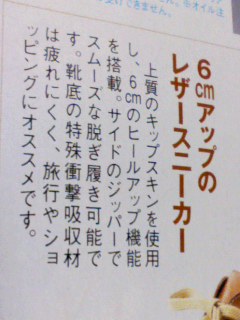 6cmアップの
レザースニーカー
上質のキップスキンを使用
し、6cmのヒールアップ機能
を搭載。サイドのジッパーで
スムーズな脱ぎ履き可能で
す。靴底の特殊衝撃吸収材
は疲れにくく、旅行やショ
ッピングにオススメです。
できません。※オイル注